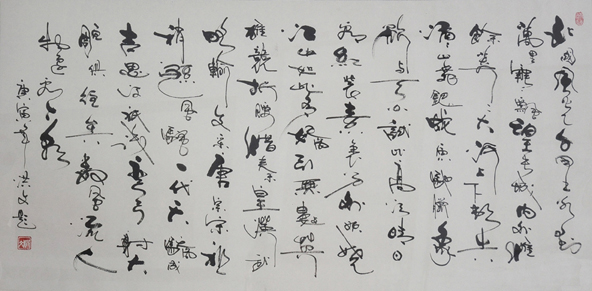 北国风光千里冰封
萬里雪飘望长城内外惟
餘莽莽大河上下顿失
滔滔山舞银蛇原驰蜡象
欲与天公试比高须晴日
看红装素裹分外妖娆
江山如此多娇引無數英
雄競折腰惜秦皇漢武
略输文采唐宗宋祖
稍逊風骚一代天骄成
吉思汗祇識弯弓射大
雕俱往矣數風流人
物還看今朝
庚寅年洪文题